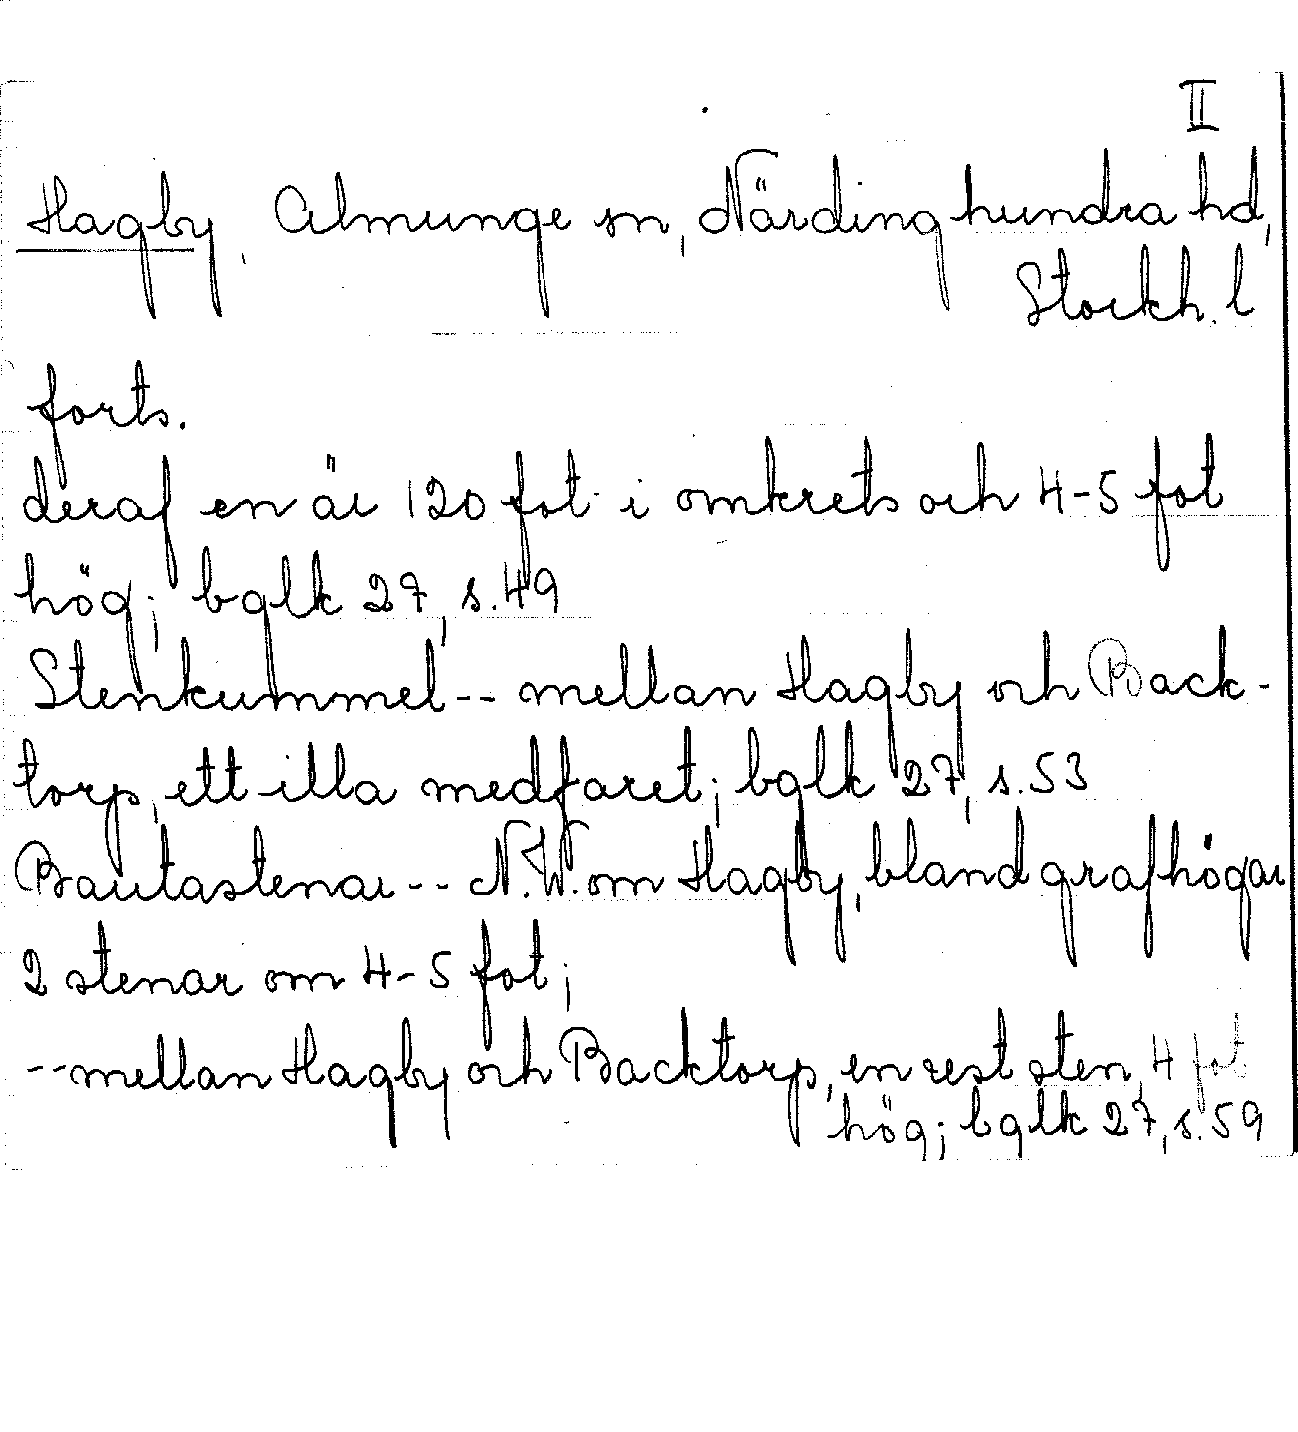 II
Hagby, Almunge sn, Närdinghundra hd,
Stockh. l
forts.
deraf en är 120 fot i omkrets och 4-5 fot
hög; bglk 27, s. 49
Stenkummel -- mellan Hagby och Back-
torp, ett illa medfaret; bglk 27, s. 53
Bautastenar -- N.W. om Hagby, bland grafhögar
2 stenar om 4-5 fot;
-- mellan Hagby och Backtorp, en rest sten, 4 fot
hög; bglk 27, s. 59